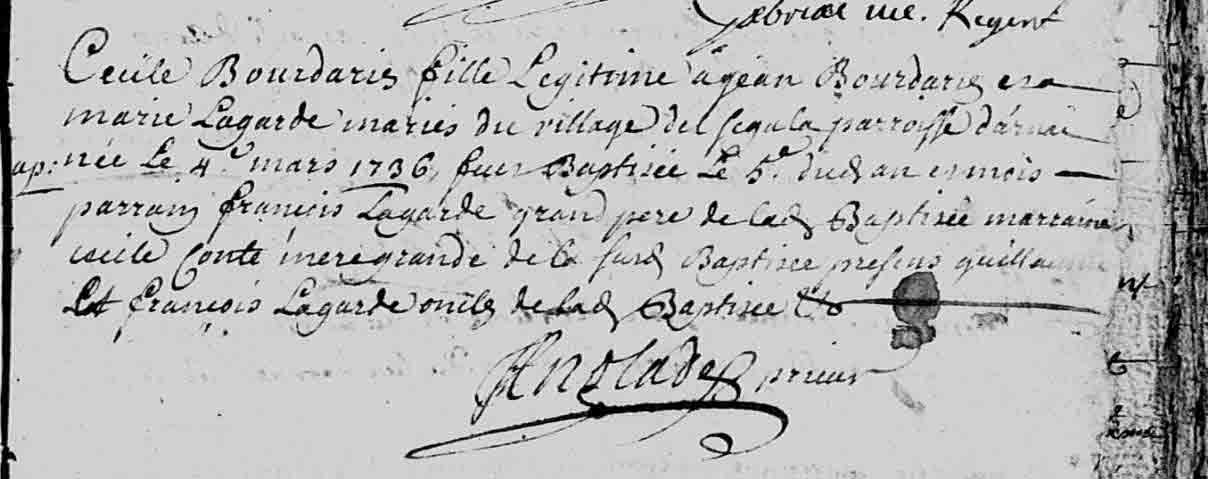 Regent
Cecile Bourdaries fille Legitime a gean Bourdaries et a
marie Lagarde mariés du village del segala parroisse d'arnac
née Le 4e mars 1736, feut Baptisée Le 5e dud an et mois
parrain françois Lagarde grand pere de lad Baptisée marraine
cecile Conte mere grande de la susd Baptisée presens guillaume
Et françois Lagarde oncles de lad Baptisée &c
Anglades prieur